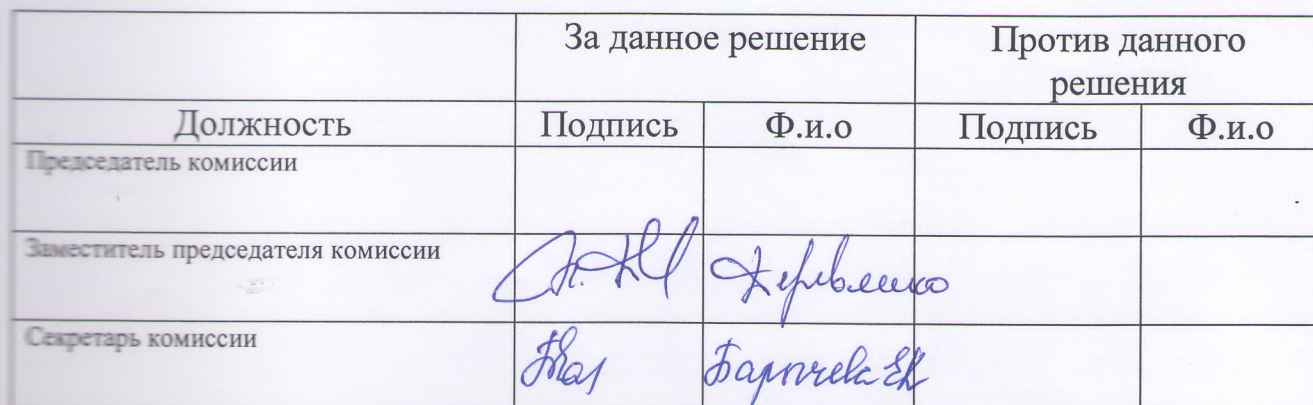 За данное решение Против данного
решения
Должность Подпись Ф.и.о Подпись Ф.и.о
Председатель комиссии
Заместитель председателя комиссии
Секретарь комиссии